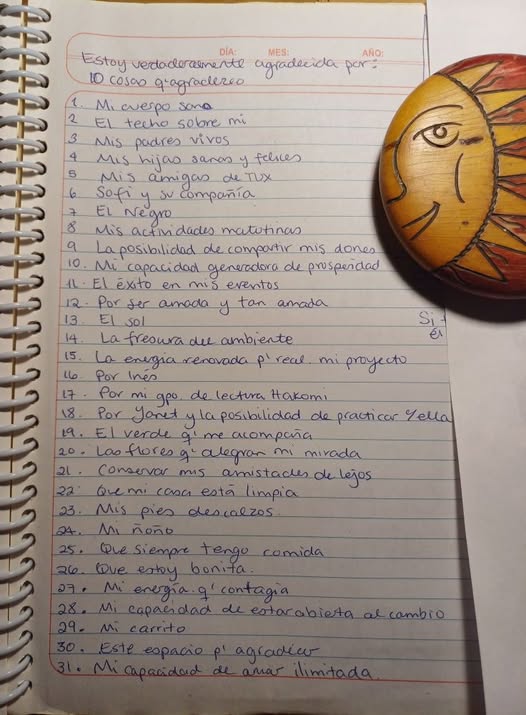 DÍA: MES: AÑO:
Estoy verdaderamente agradecida por:
10 cosas q' agradezco
1. Mi cuerpo sano
2 El techo sobre mi
3 Mis padres vivos
4 Mis hijas sanas y felices
5 Mis amigas de TUX
6 Sofi y su compañía
7 El Negro
8 Mis actividades matutinas
9 La posibilidad de compartir mis dones
10. Mi capacidad generadora de prosperidad
11. El éxito en mis eventos
12. Por ser amada y tan amada
13 El sol
14. La frescura del ambiente
15. La energía renovada p' real. mi proyecto
16. Por Inés
17. Por mi gpo. de lectura Hakomi
18. Por Yanet y la posibilidad de practicar c/ella
19. El verde q' me acompaña
20. Las flores q' alegran mi mirada
21. Conservar mis amistades de lejos
22. Que mi casa está limpia
23. Mis pies descalzos
24. Mi ñoño
25. Que siempre tengo comida
26. Que estoy bonita.
27. Mi energía q' contagia
28. Mi capacidad de estar abierta al cambio
29. Mi carrito
30. Este espacio p' agradecer
31. Mi capacidad de amar ilimitada.
Si
él